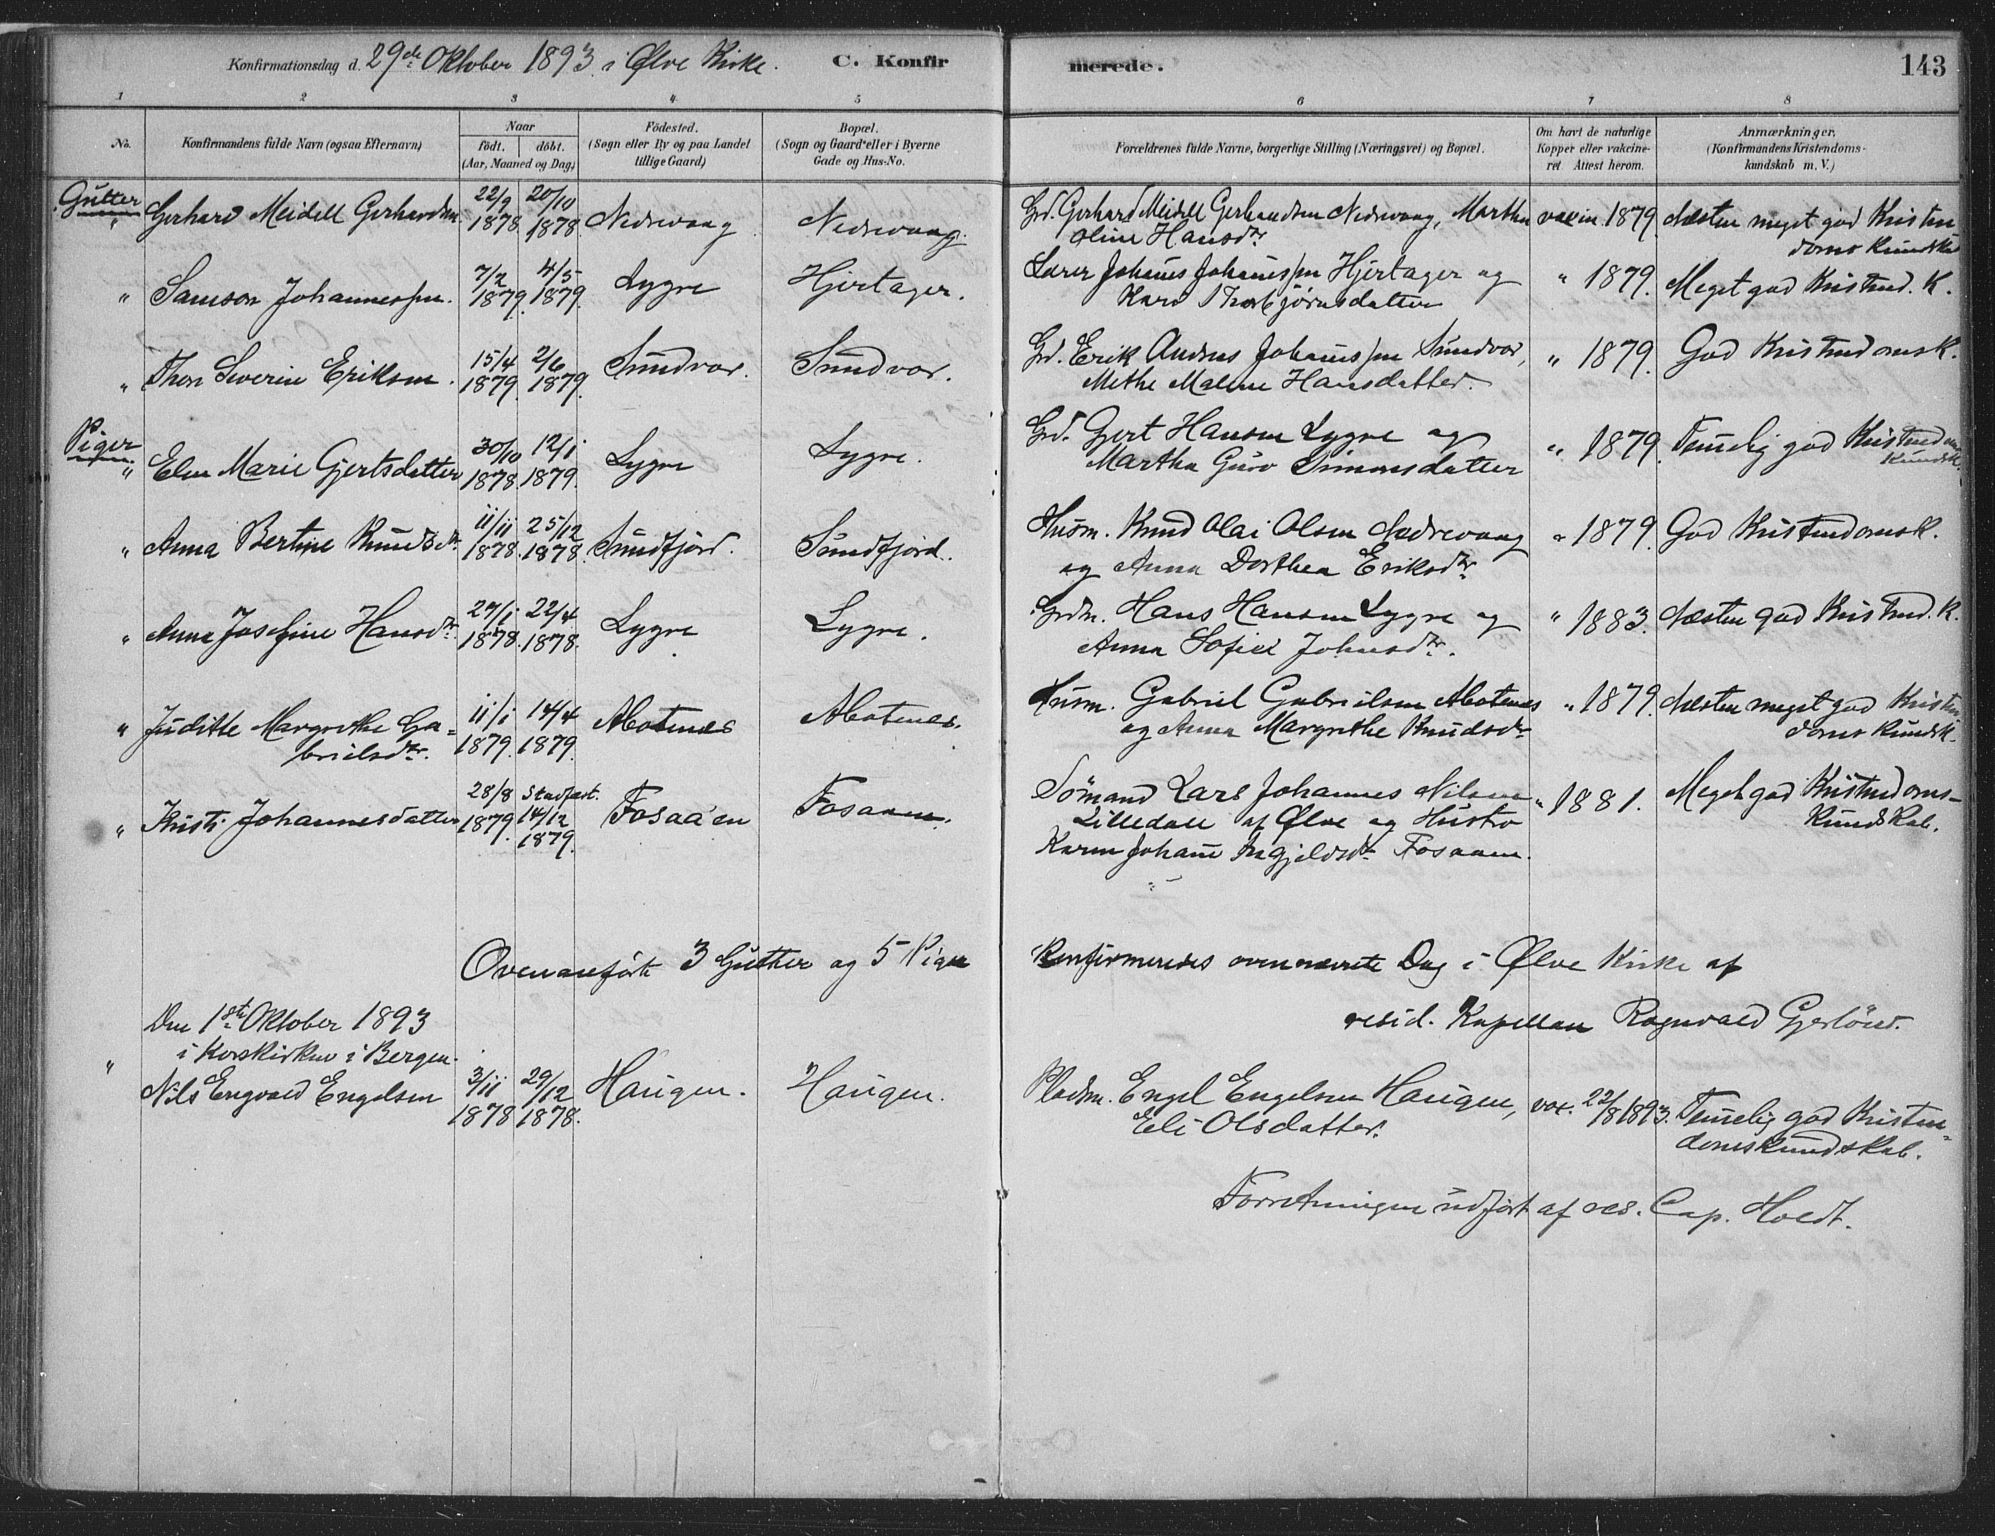 Konfirmationsdag d. 29de Oktober 1893 i Ølve Kirke. C. Konfirmerede. 143
1 2 3 4 5 6 7 8
No. Konfirmandens fulde Navn (ogsaa Efternavn) Naar födt. döbt. (Aar, Maaned og Dag) Födested. (Sogn eller By og paa Landet tillige Gaard) Bopæl. (Sogn og Gaard eller i Byerne Gade og Hus-No. Forældrenes fulde Navne, borgerlige Stilling (Næringsvei) og Bopæl. Om havt de naturlige Kopper eller vakcineret Attest herom. Anmærkninger. (Konfirmandens Kristendomskundskab m. V.)
Gutter
" Gerhard Meidell Gerhardsen 22/9 1878 20/10 1878 Nedrevaag Nedrevaag. Grd. Gerhard Meidell Gerhardsen Nedrevaag, Martha Oline Hansdtr vaccin 1879. Næsten meget god Kristendomskundsk
" Samson Johannessen. 7/2 1879. 4/5 1879. Lygre Hjertager. Lærer Johannes Johannessen Hjertager og Kari Thorbjørnsdatter " 1879. Meget god Kristend. K.
" Thor Severin Eriksen. 15/4 1879. 2/6 1879. Sundvor. Sundvor. Grd. Erik Andreas Johannessen Sundvor, Methe Malene Hansdatter. " 1879. God Kristendomsk.
Piger
" Elen Marie Gjertsdatter 30/10 1878. 12/1 1879. Lygre Lygre. Grd. Gjert Hansen Lygre og Martha Guro Simonsdatter " 1879. Temelig god Kristendomskundsk.
" Anna Bertine Knudsdtr 11/11 1878. 25/12 1878. Sundfjord. Sundfjord. Husm. Knud Olai Olsen Nedrevaag og Anna Dorthea Eriksdtr " 1879. God Kristendomsk.
" Anna Josefine Hansdtr 27/1 1878. 22/4 1878. Lygre Lygre. Grdm. Hans Hansen Lygre og Anna Sofie Johnsdtr. " 1883. Næsten god Kristend. K.
" Juditte Margrethe Gabrielsdtr. 11/1 1879. 14/4 1879. Abotenes Abotenes. Husm. Gabriel Gabrielsen Abotenes og Anna Margrethe Knudsdtr " 1879. Næsten meget god Kristendomskundsk.
" Kristi Johannesdatter 28/8 1879. Stadfæst. 14/12 1879. Fosaa'en Fosaaen. Sömand Lars Johannes Nilsen Lilledale af Ølve og Hustro Karen Johane Fosaaen. " 1881. Meget god Kristendomskundskab.
Ovenanførte 3 Gutter og 5 Piger Konfirmeredes ovennævnte Dag i Ølve Kirke af
resid. Kapellan Ragnvald Gjerlöw.
Den 1ste Oktober 1893
i Korskirken i Bergen.
" Nils Engvald Engelsen 3/11 1878 29/12 1878. Haugen. Haugen. Pladsm. Engel Engelsen Haugen, Eli Olsdatter. vac. 22/8 1893. Temelig god Kristendomskundskab.
Forretningen udført af res. Cap. Holdt.